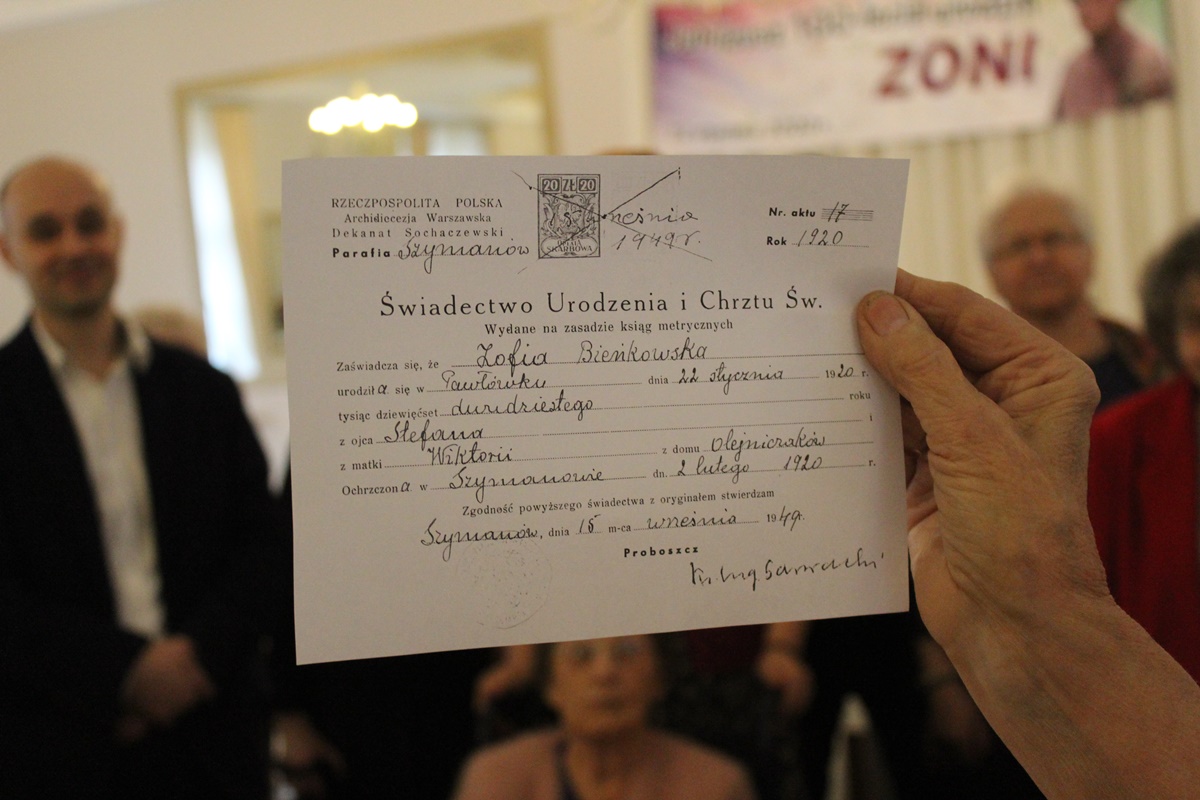 ZONI
RZECZPOSPOLITA POLSKA
Archidiecezja Warszawska
Dekanat Sochaczewski
Parafia Szymanów
20 ZŁ 20
OPŁATA SKARBOWA
15 września
1949 r.
Nr. aktu 17
Rok 1920
Świadectwo Urodzenia i Chrztu Św.
Wydane na zasadzie ksiąg metrycznych
Zaświadcza się, że Zofia Bieńkowska
urodziła się w Pawłówku dnia 22 stycznia 1920 r.
tysiąc dziewięćset dwudziestego roku
z ojca Stefana i
z matki Wiktorii z domu Olejniczaków
Ochrzczona w Szymanowie dn. 2 lutego 1920 r.
Zgodność powyższego świadectwa z oryginałem stwierdzam
Szymanów, dnia 15 m-ca września 1949.
Proboszcz